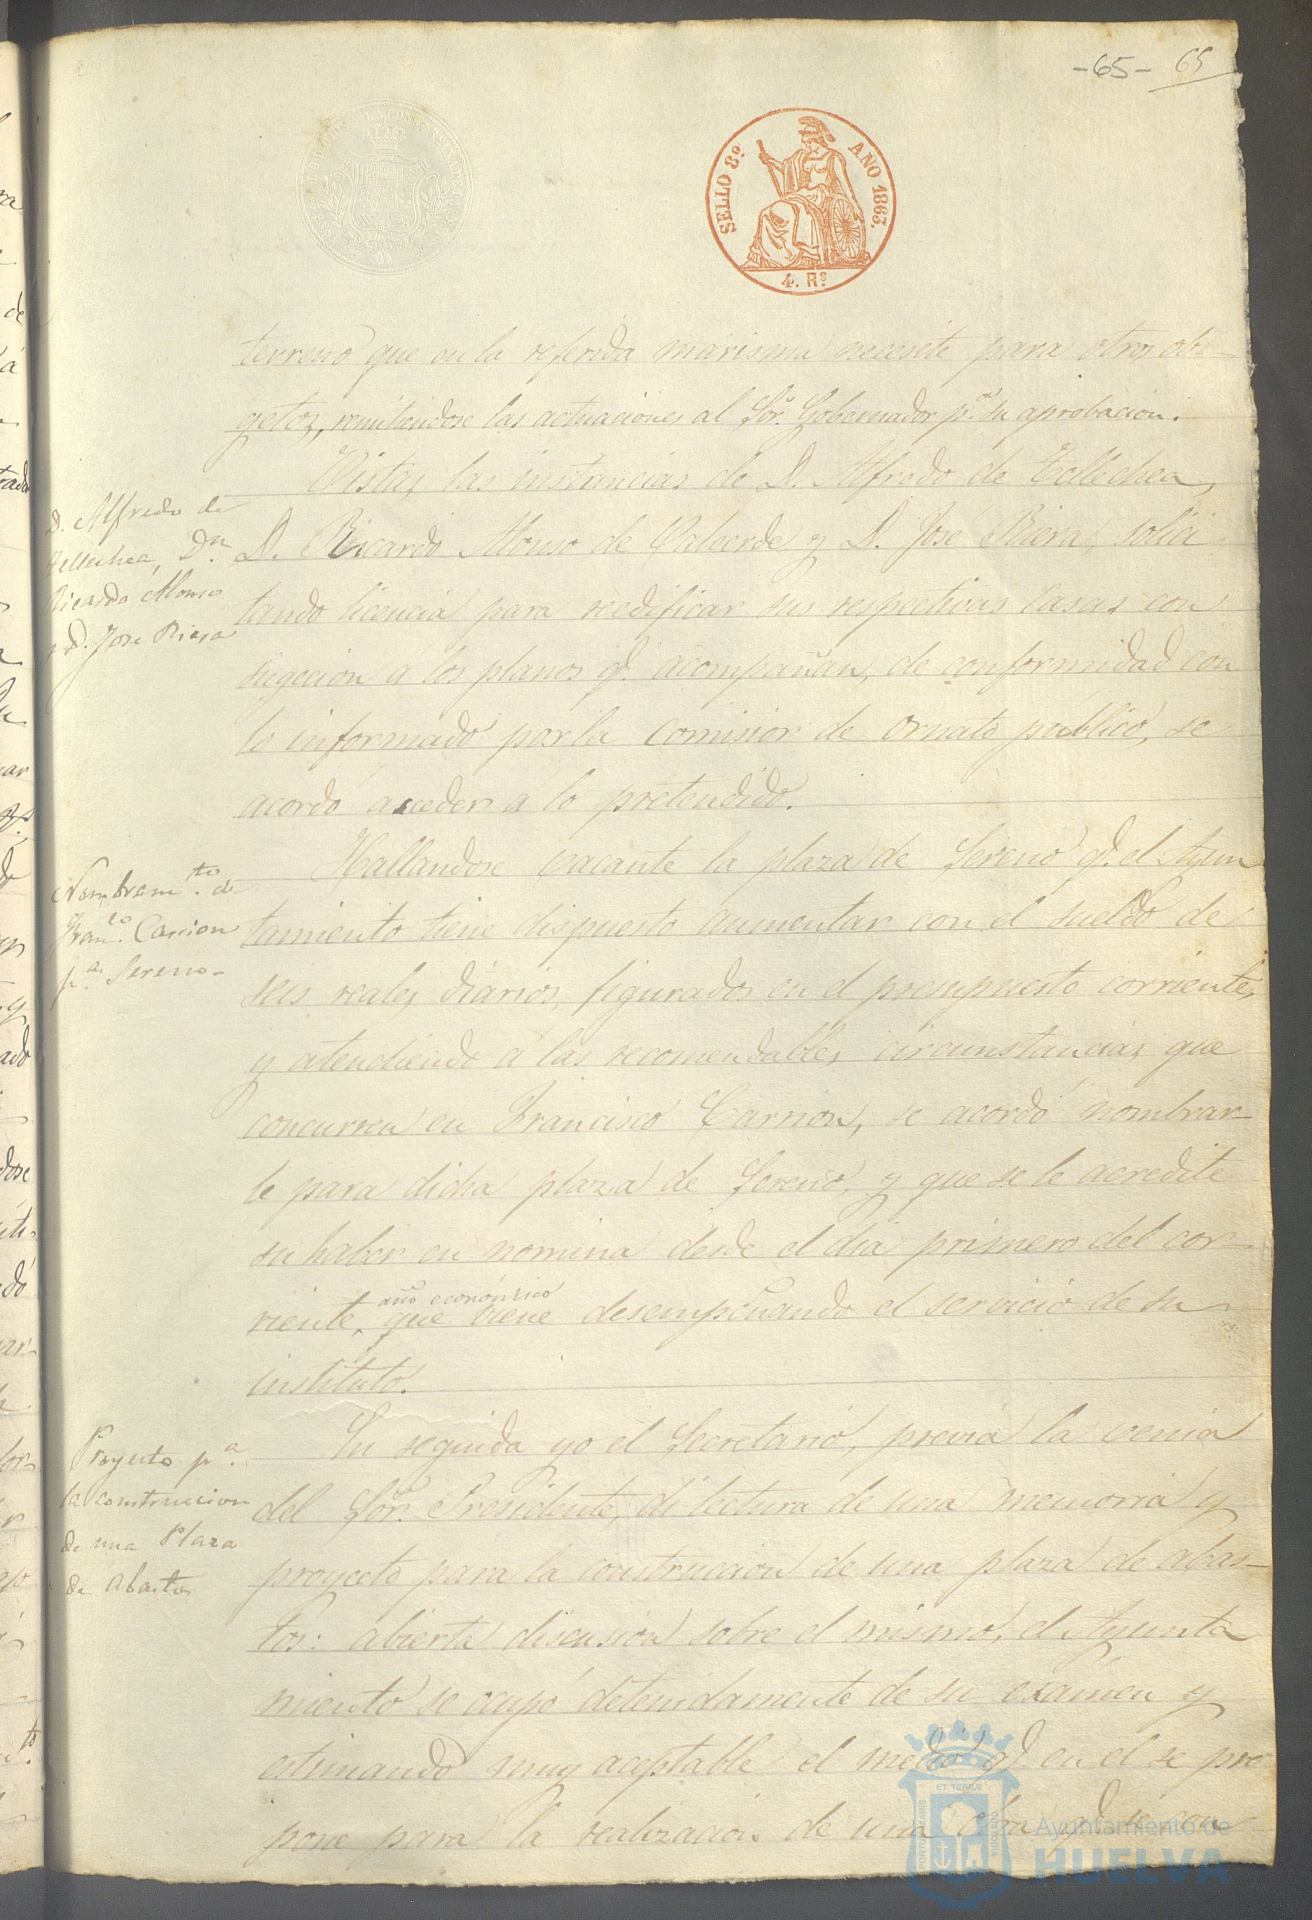 -65- 65
SELLO 8º AÑO 1863.
4. Rs
terreno que en la referida marisma necesite para otros ob-
getos, remitiendose las actuaciones al Sor. Gobernador pa. su aprobacion.
D. Alfredo de
Tellechea, Dn.
Ricardo Alonso
y D. Jose Riera
Vistas las instancias de D. Alfredo de Tellechea,
D. Ricardo Alonso de Valverde y D. José Riera, solici
tando licencia para reedificar sus respectivas casas con
sugecion a los planos q. acompañan, de conformidad con
lo informado por la comision de ornato público, se
acordó acceder á lo pretendido.
Nombramto. de
Franco. Carrion
pa. Sereno-
Hallandose vacante la plaza de Sereno q. el Ayun
tamiento tiene dispuesto aumentar con el sueldo de
seis reales diarios, figurados en el presupuesto corriente,
y atendiendo á las recomendables circunstancias que
concurren en Francisco Carrion, se acordó nombrar-
le para dicha plaza de Sereno, y que se le acredite
su haber en nomina desde el dia primero del cor-
riente, año económico que viene desempeñando el servicio de su
instituto.
Proyecto pa.
la construccion
de una Plaza
de Abastos
En seguida yo el Secretario, previa la venia
del Sor. Presidente, di lectura de una memoria y
proyecto para la construccion de una plaza de abas-
tos: abierta discusion sobre el mismo, el Ayunta
miento se ocupó detenidamente de su exámen y
estimando muy aceptable el medio q. en el se pro
pone para la realizacion de una obra q. se con
PORTUS MARIS ET TERRAE CUSTODIA
Ayuntamiento de
HUELVA